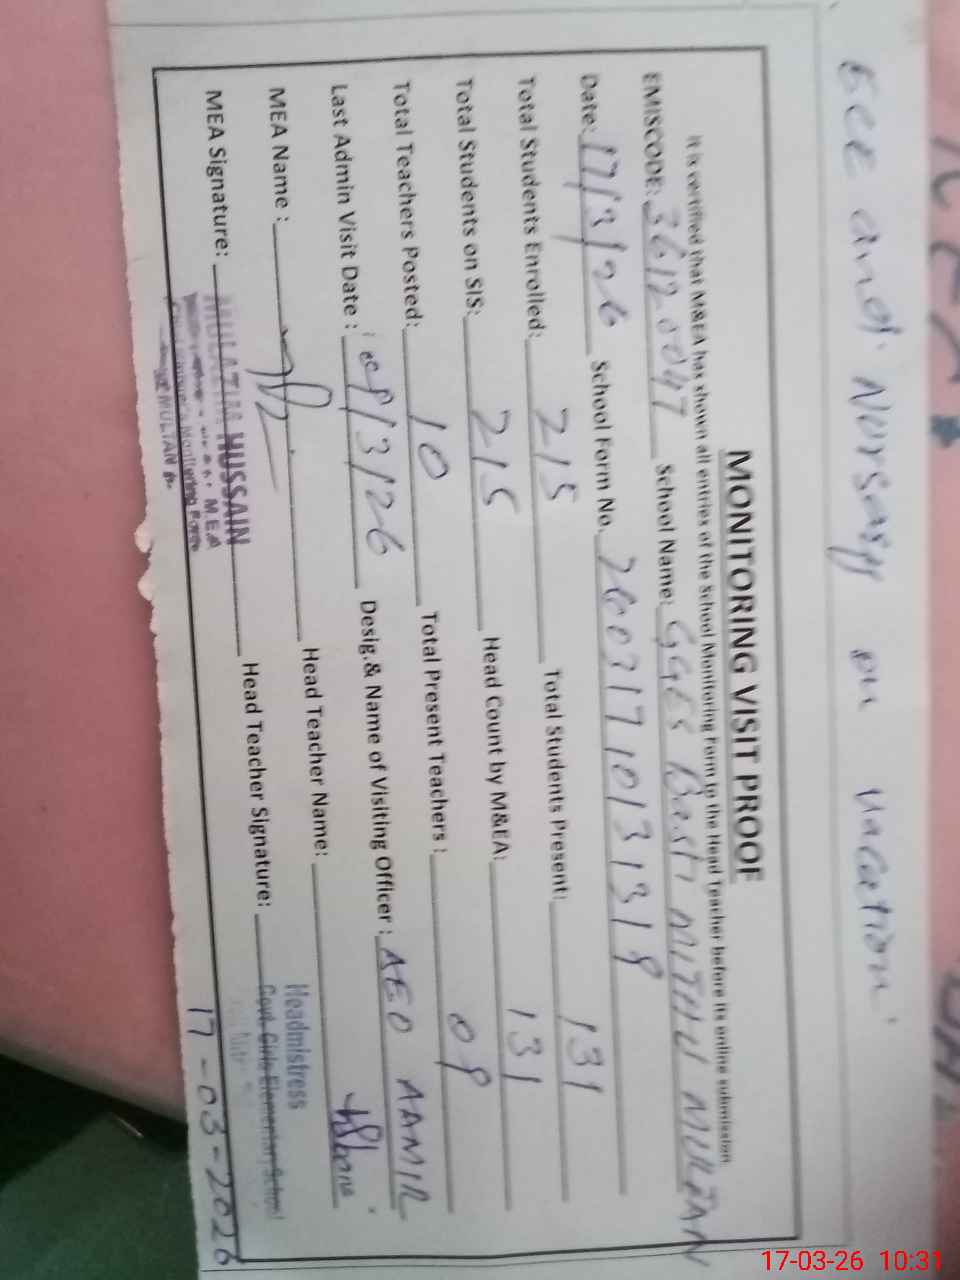 ECE and Nursery on vacation
MONITORING VISIT PROOF
It is certified that M&EA has shown all entries of the School Monitoring Form to the Head Teacher before its online submission
EMISCODE: School Name: GGES Basti MITHU MULTAN
Date: 17/3/26 School Form No.
Total Students Enrolled: 215 Total Students Present: 131
Total Students on SIS: 215 Head Count by M&EA: 131
Total Teachers Posted: 10 Total Present Teachers: 09
Last Admin Visit Date: 09/3/26 Desig.& Name of Visiting Officer: AEO AAMIR
MEA Name: Head Teacher Name:
MEA Signature: Head Teacher Signature:
HUSSAIN
M.E.A
Monitoring Force
MULTAN
Headmistress
Govt. Girls Elementary School
17-03-2026
17-03-26 10:31